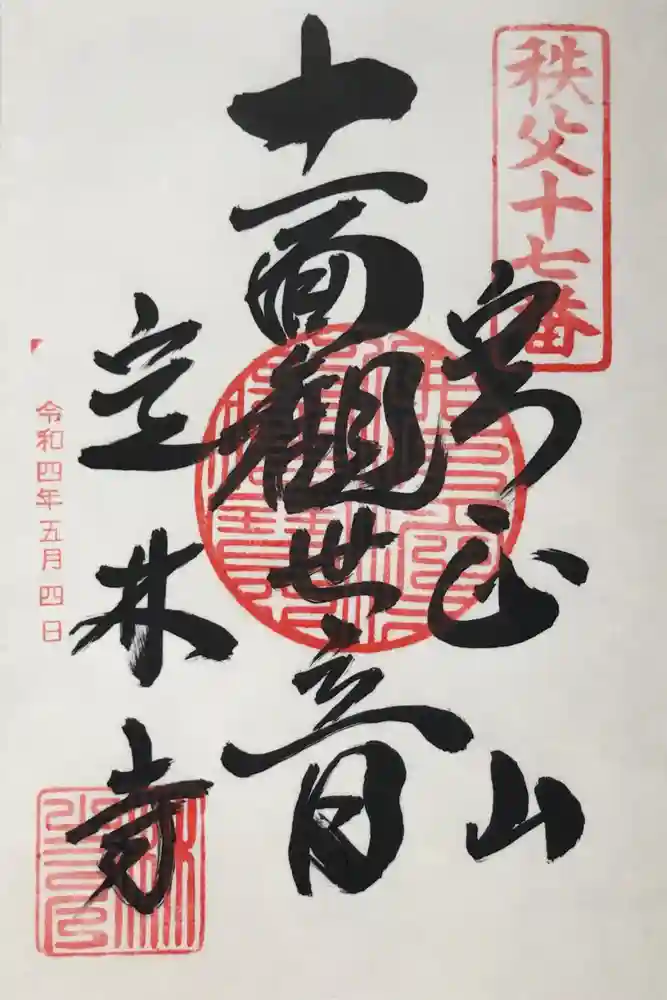 秩父十七番
實正山
十一面觀世音
定林寺
令和四年五月四日